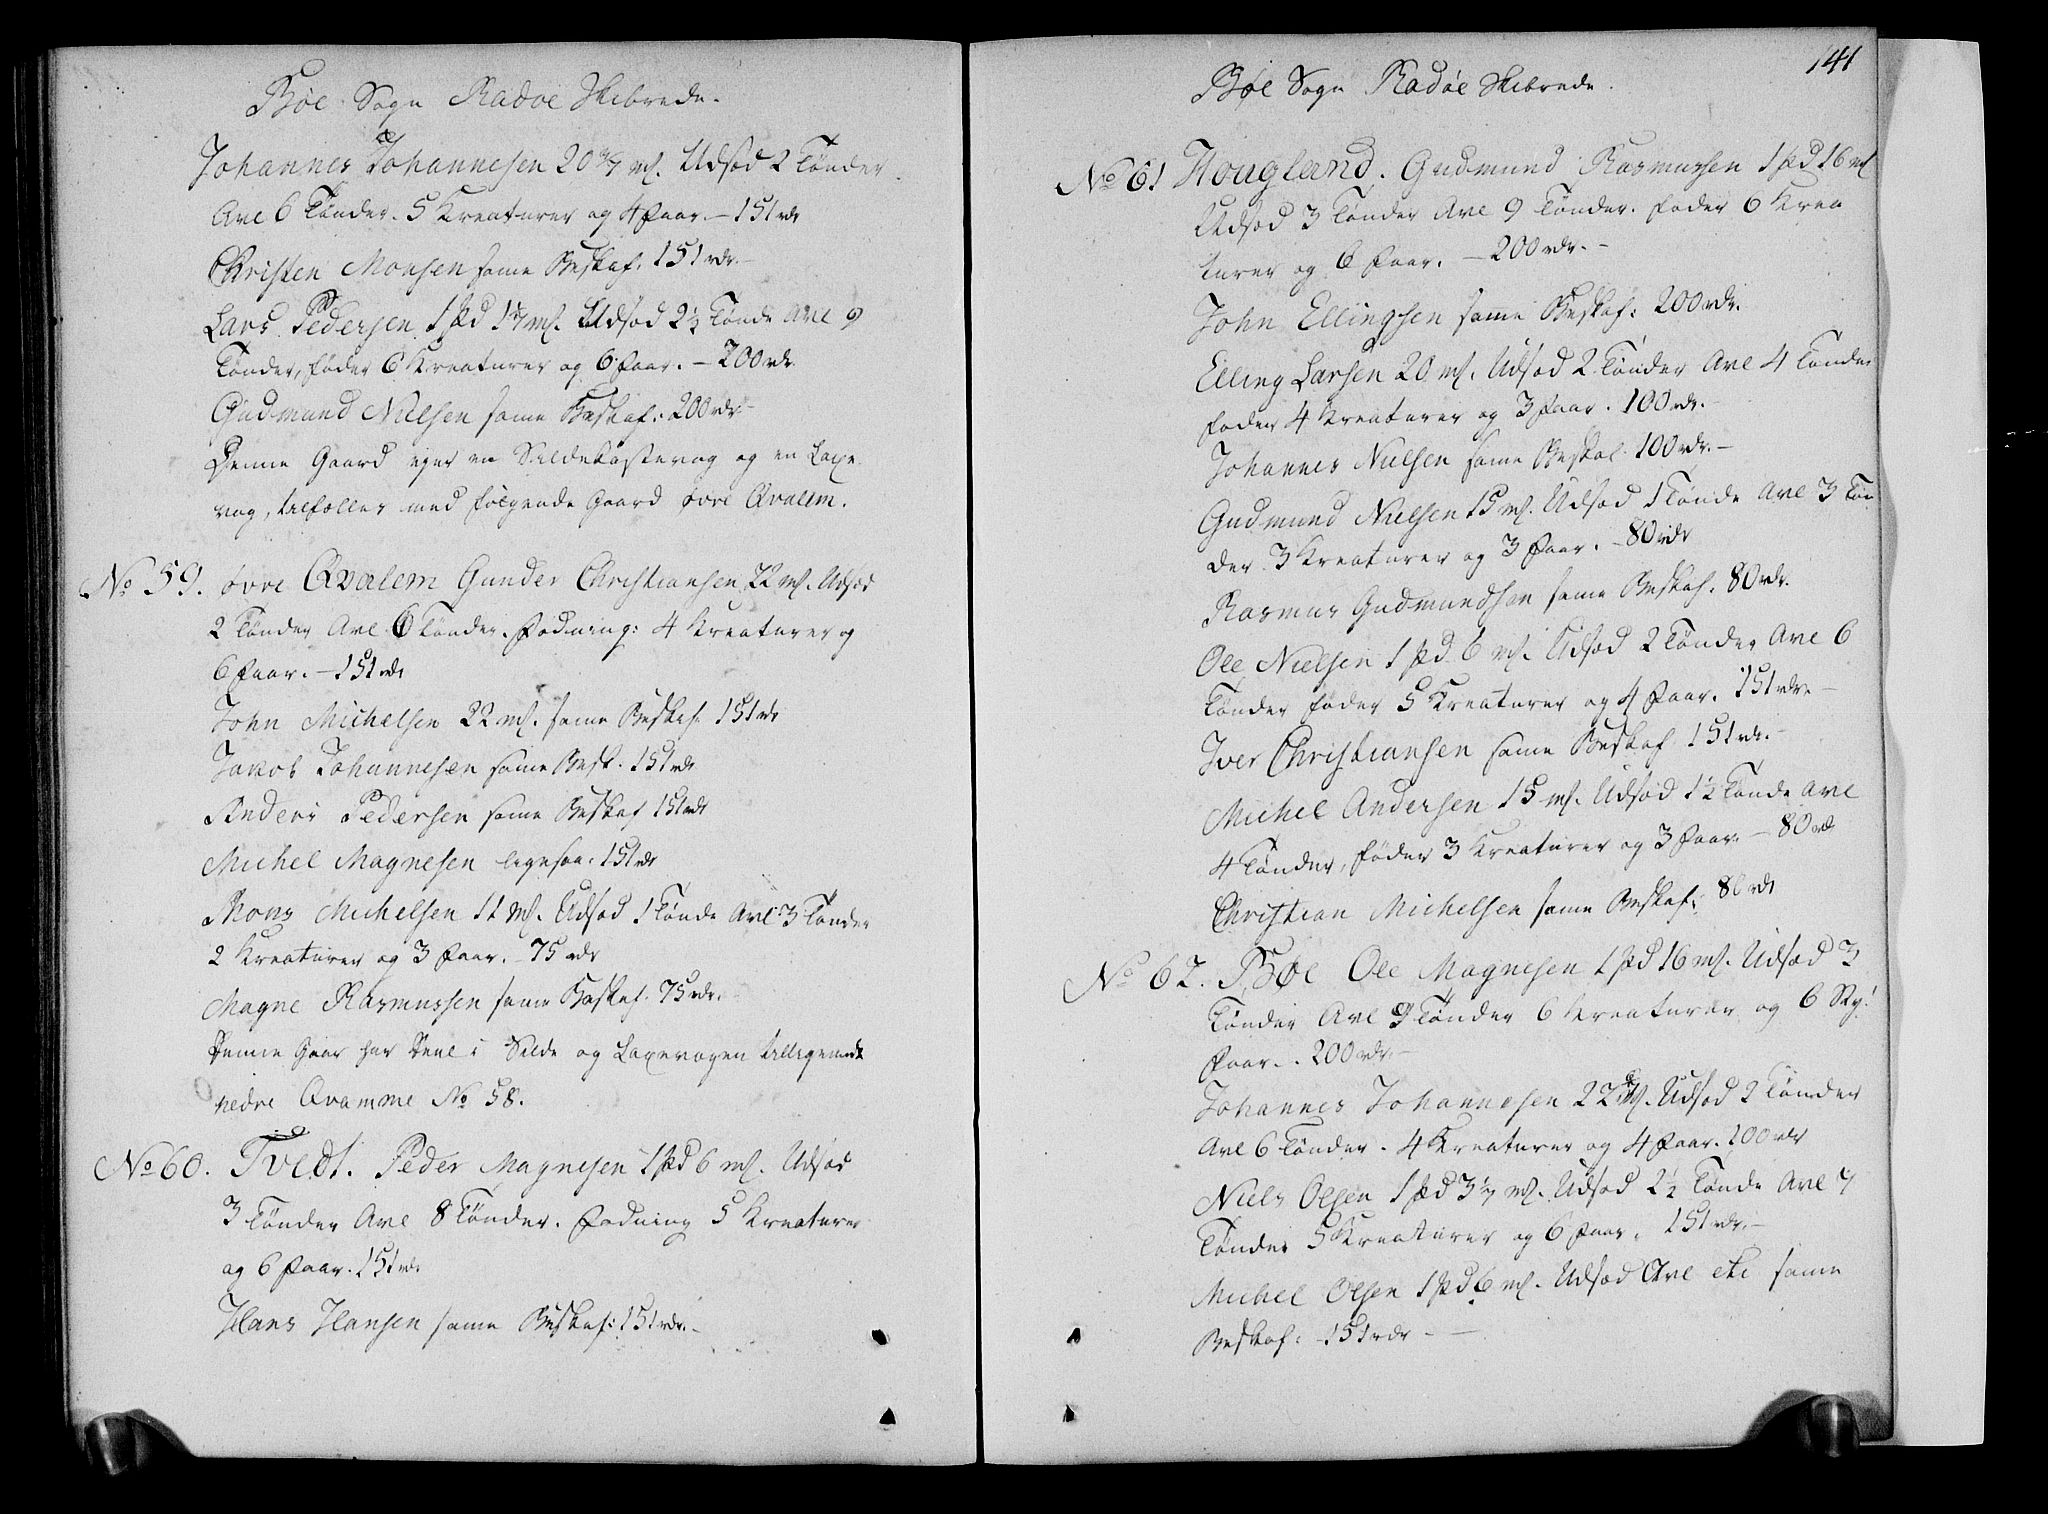 Bøe Sogn Radøe Skibrede.
Johannes Johannesen 20 3/7 ml. Udsæd 2 Tønder
Avl 6 Tønder. 5 Kreaturer og 4 Faar. – 151 rdr
Christen Monsen same Beskaf. 151 rdr. –
Lars Pedersen 1 pd ml. Udsæd 2½ Tønde Avl 9
Tønder, føder 6 Kreaturer og 6 Faar. – 200 rdr.
Gudmund Nielsen same Beskaf: 200 rdr –
Denne Gaard eger en Sildekastevog og en Laxe
vog, tilfælles med følgende Gaard øvre Qvalem.
No 59. øvre Qvalem Gunder Christiansen 22 ml. Udsæd
2 Tønder Avl 6 Tønder. Fødning: 4 Kreaturer og
6 Faar. – 151 rdr
John Michelsen 22 ml. same Beskaf. 151 rdr
Jakob Johannesen same Besk. 151 rdr
Anders Pedersen same Beskaf 151 rdr
Michel Magnesen ligesaa. 151 rdr
Mons Michelsen 11 ml. Udsæd 1 Tønde Avl 3 Tønder
2 Kreaturer og 3 Faar. – 75 rdr
Magne Rasmussen same Beskaf. 75 rdr.
Denne Gaar har Deel i Silde og Laxevogen tilligemed
nedre Qvamme No 58.
No 60. Tvedt. Peder Magnesen 1 pd 6 ml. Udsæd
3 Tønder Avl 8 Tønder. Fødning 5 Kreaturer
og 6 Faar. 151 rdr
Hans Hansen same Beskaf: 151 rdr. –
141
Bøe Sogn Radøe Skibrede.
No 61 Hougland. Gudmund Rasmussen 1 pd 16 ml
Udsæd 3 Tønder Avl 9 Tønder. føder 6 Krea
turer og 6 Faar. – 200 rdr. –
John Ellingsen same Beskaf: 200 rdr.
Elling Larsen 20 ml. Udsæd 2 Tønder Avl 4 Tønder
føder 4 Kreaturer og 3 Faar. 100 rdr. –
Johannes Nielsen same Beskaf. 100 rdr. –
Gudmund Nielsen 15 ml. Udsæd 1 Tønde Avl 3 Tøn
der 3 Kreaturer og 3 Faar. – 80 rdr
Rasmus Gudmundsen same Beskaf. 80 rdr.
Ole Nielsen 1 pd 6 ml. Udsæd 2 Tønder Avl 6
Tønder føder 5 Kreaturer og 4 Faar. 151 rdr. –
Iver Christiansen same Beskaf 151 rdr. –
Michel Andersen 15 ml. Udsæd 1½ Tønde Avl
4 Tønder, føder 3 Kreaturer og 3 Faar – 80 rdr
Christian Michelsen same Beskaf: 80 rdr
No 62. Bøe Ole Magnesen 1 pd 16 ml. Udsæd 3
Tønder Avl 9 Tønder 6 Kreaturer og 6 Sty:
Faar. . 200 rdr. –
Johannes Johannesen 22 ml. Udsæd 2 Tønder
Avl 6 Tønder. 4 Kreaturer og 4 Faar. 100 rdr
Niels Olsen 1 pd 3 1/7 ml. Udsæd 2½ Tønde Avl 7
Tønder 5 Kreaturer og 6 Faar. 151 rdr. –
Michel Olsen 1 pd 6 ml. Udsæd Avl etc same
Beskaf: – 151 rdr – –